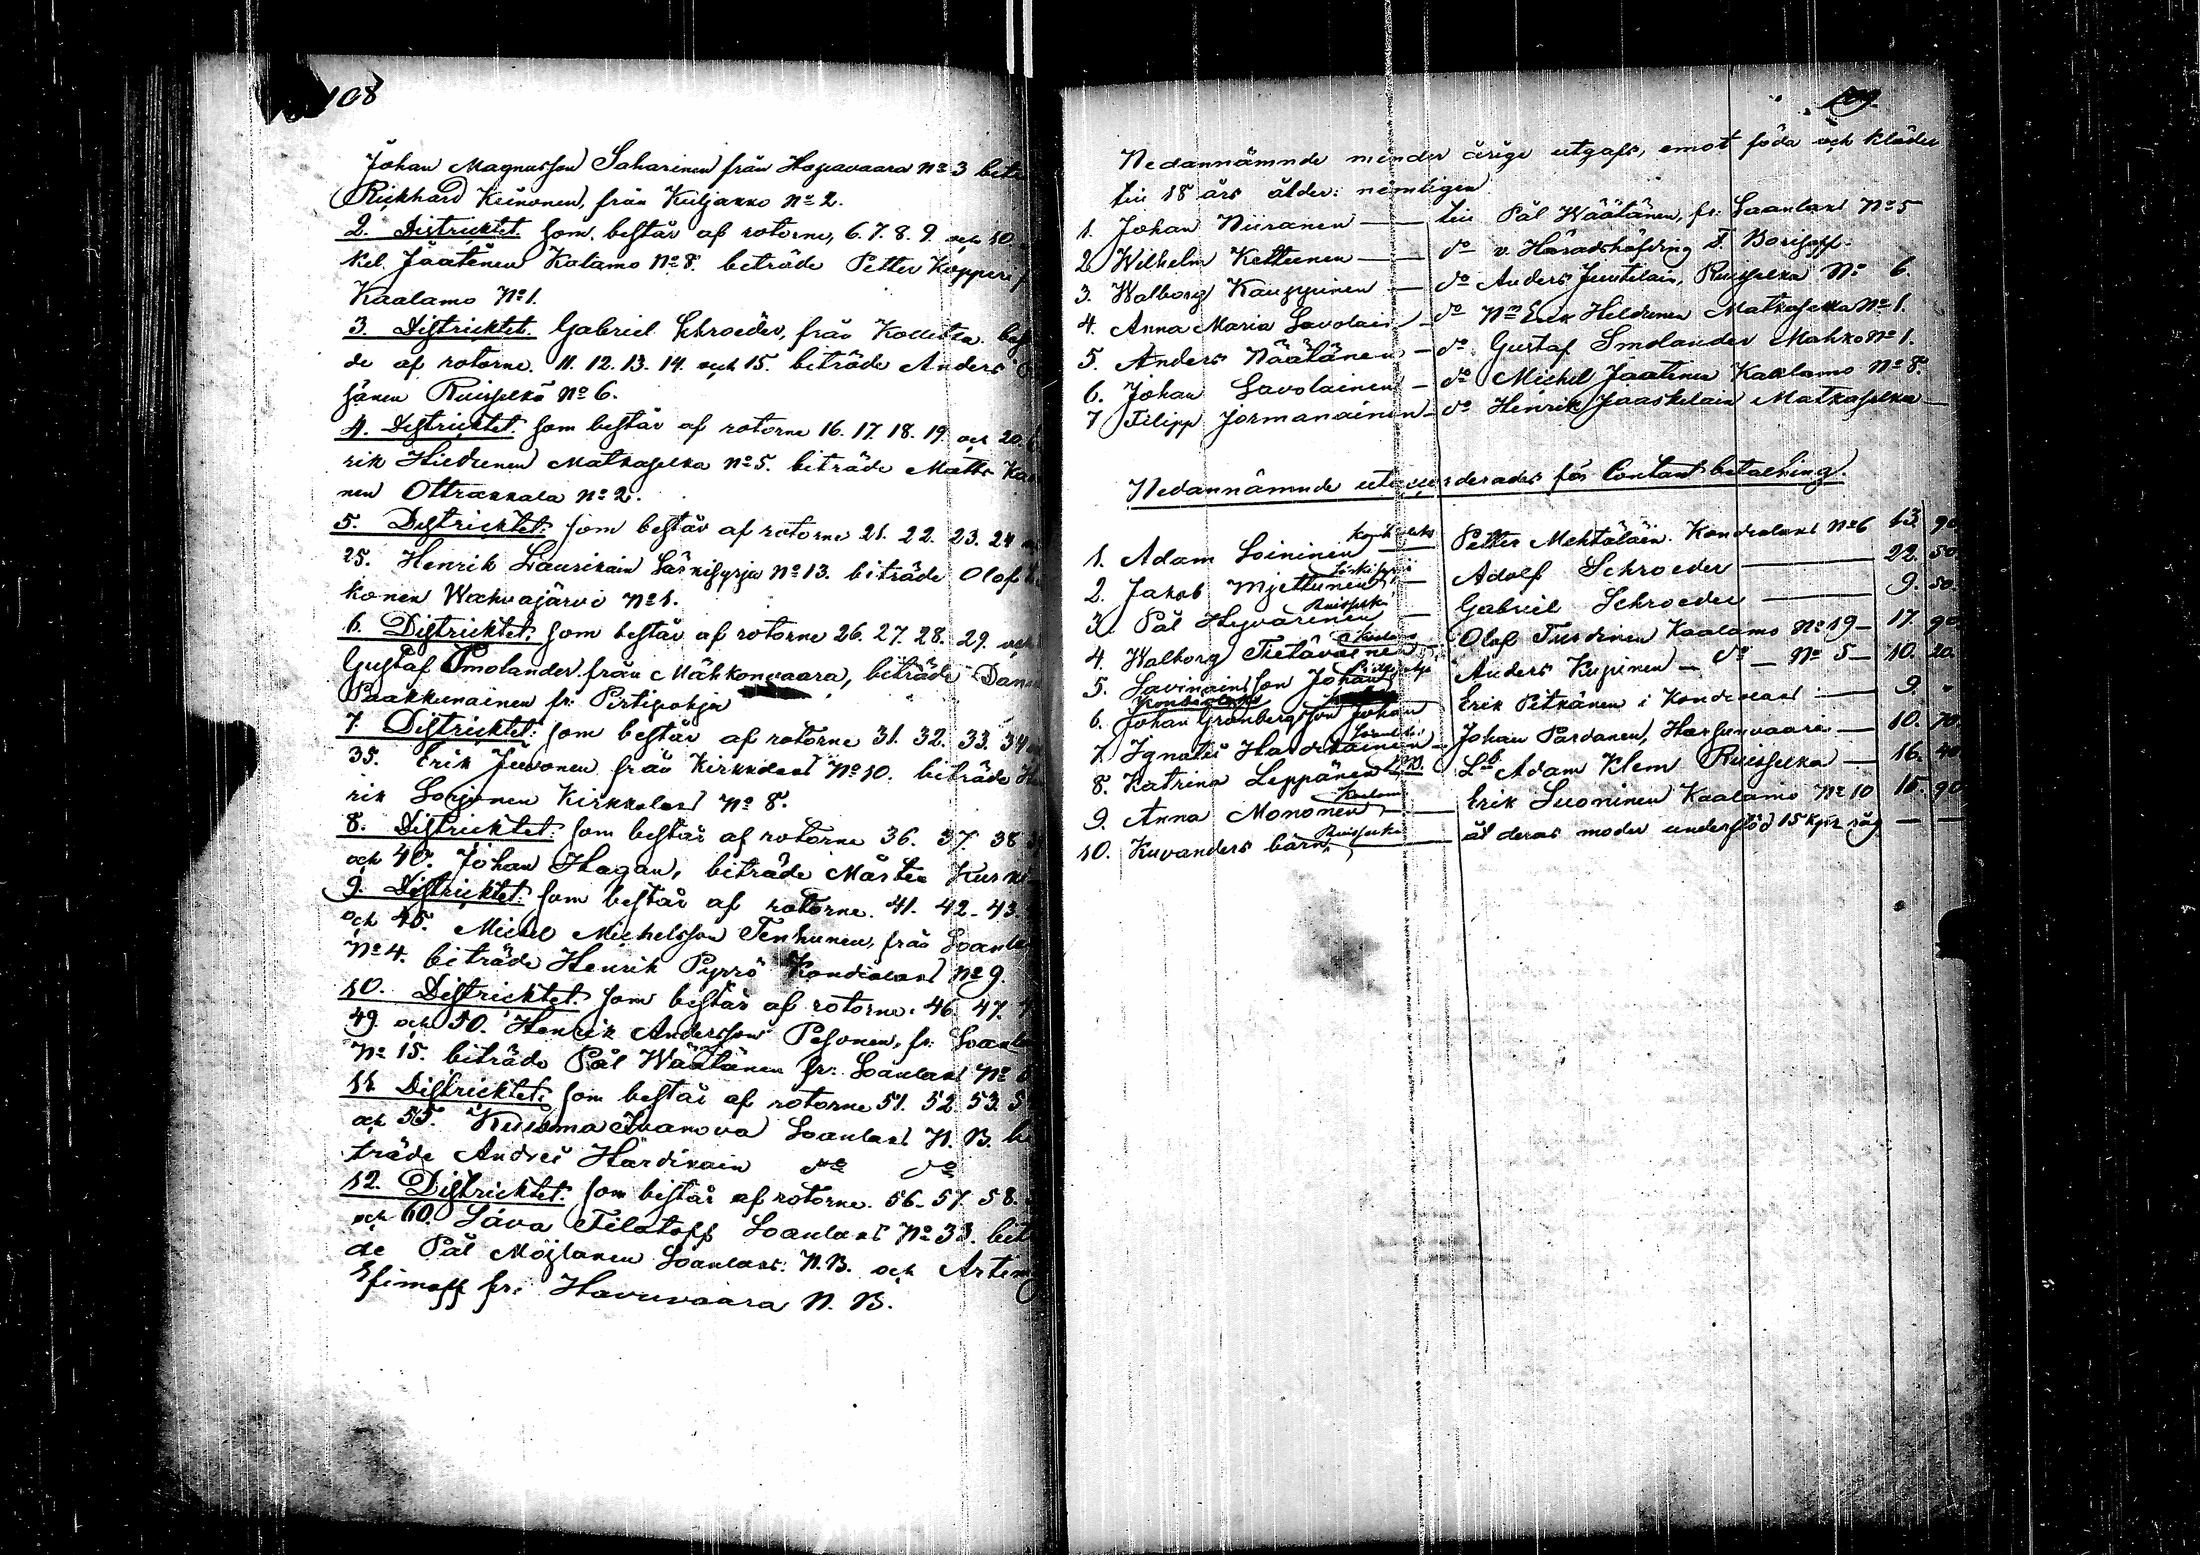 108
Johan Magnusson Saharinen från Hapavaara No 3 bitr
Rickhard Keinonen, från Kuljakko No 2.
2. Districktet. som. består af rotorne, 6. 7. 8. 9. och 10.
kel Jäätenen Kalamo No 8. beträde Petter Kopper
Kaalamo No 1.
3. Districktet. Gabriel Schroeder, från Kollitta
de af rotorne. 11. 12. 13. 14. och 15. beträde Anders
jänen Ruisselkä No 6.
4. Districktet. som består af rotorne 16. 17. 18. 19. och 20.
rik Hiedunen Matkaselka No 5. biträde Matts Kar
nen Ottrakkala No 2.
5. Districktet: som består af rotorne 21. 22. 23. 24
25. Henrik Laurikain Särkisyrja No 13. biträde Olof
konen Wahvajärvi No 1.
6. Districktet: som består af rotorne 26. 27. 28. 29. och
Gustaf Smolander från Mähkonvaara, biträde Dan
Paakkunainen fr: Pirtipohja
7. Districktet: som består af rotorne 31. 32. 33. 34
35. Erik Juvonen från Kirkkolaks No 10. biträde
rik Sorjonen Kirkkolaks No 8.
8. Districktet: som består af rotorne 36. 37. 38
och 40. Johan Hagan, biträde Mårten Kurki
9. Districktet: som består af rotorne. 41. 42. 43.
och 45. Michel Michelsson Tenhunen, från Soanla
No 4. biträde Henrik Pyrrö Kondislaks No 9.
10. Districktet. som består af rotorne. 46. 47.
49. och 50. Henrik Andersson Pesonen, fr. Soanla
No 15. biträde Pål Wäätänen fr: Soanlaks No
11. Districktet: som består af rotorne 51. 52. 53.
och 55. Kusma Ivanova Soanlaks N. B. bi
träde Andrei Härdikain do do
12. Districktet. som består af rotorne. 56. 57. 58.
och 60. Sava Filatoff Soanlaks No 33. bit
de Pål Möjlanen Soanlaks. N. B. och Artem
Efimoff fr: Havuvaara N. B.
109.
Nedannämnde minder årige utgafs, emot föda och kläder
till 18 års ålder: nemligen
1. Johan Niiranen — till Pål Wäätänen, fr. Soanlaks No 5
2. Wilhelm Kettunen — do v. Häradshöfding F. Borisoff.
3. Walborg Kauppinen — do Anders Juutelain, Ruisselka No 6.
4. Anna Maria Savolain — do Nm Erik Heldunen Matkaselka No 1.
5. Anders Näätänen — do Gustaf Smolander Mahko No 1.
6. Johan Savolainen — do Michel Jaatenen Kaalamo No 8.
7. Filipp Jormanainen — do Henrik Jaaskelain Matkaselka —
Nedannämnde utaccorderades för Contant betalning.
1. Adam Loininen Petter Mehtäläin. Kondislaks No 6 13. 90
2. Jakob Mjettunen — Adolf Schroeder — 22. 50
3. Pål Hyvärinen Ruisselkä — Gabriel Schroeder — 9. 50.
4. Walborg Tietäväinen — Olof Turdinen Kaalamo No 19 — 17. 90
5. Savinains son Johan Anders Kupinen — do — No 5 — 10. 20
Kondislaks
6. Johan Grönbergsson Johan Erik Pitkänen i Kondislaks — 9. "
7. Ignatei Hardikainen — Johan Pardanen, Harsunvaara — 10. 70
8. Katrina Leppänen N.B. Ldb Adam Klem Ruisselka — 16. 40
9. Anna Mononen Kaalamo — Erik Suoninen Kaalamo No 10 15. 90
10. Kuvanders barn, Ruisselka — åt deras moder understöd 15 kpr råg — —